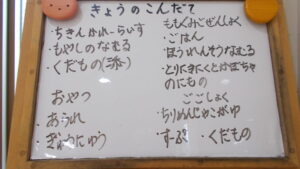 きょうのこんだて
ちきんかれーらいす
・もやしのなむる
・くだもの(添)
おやつ
・あられ
・ぎゅうにゅう
ももぐみごぜんしょく
・ごはん
・ほうれんそうなむる
・とりにくとかぼちゃ
のにもの
ごごしょく
・ちりめんじゃこがゆ
・すーぷ ・くだもの